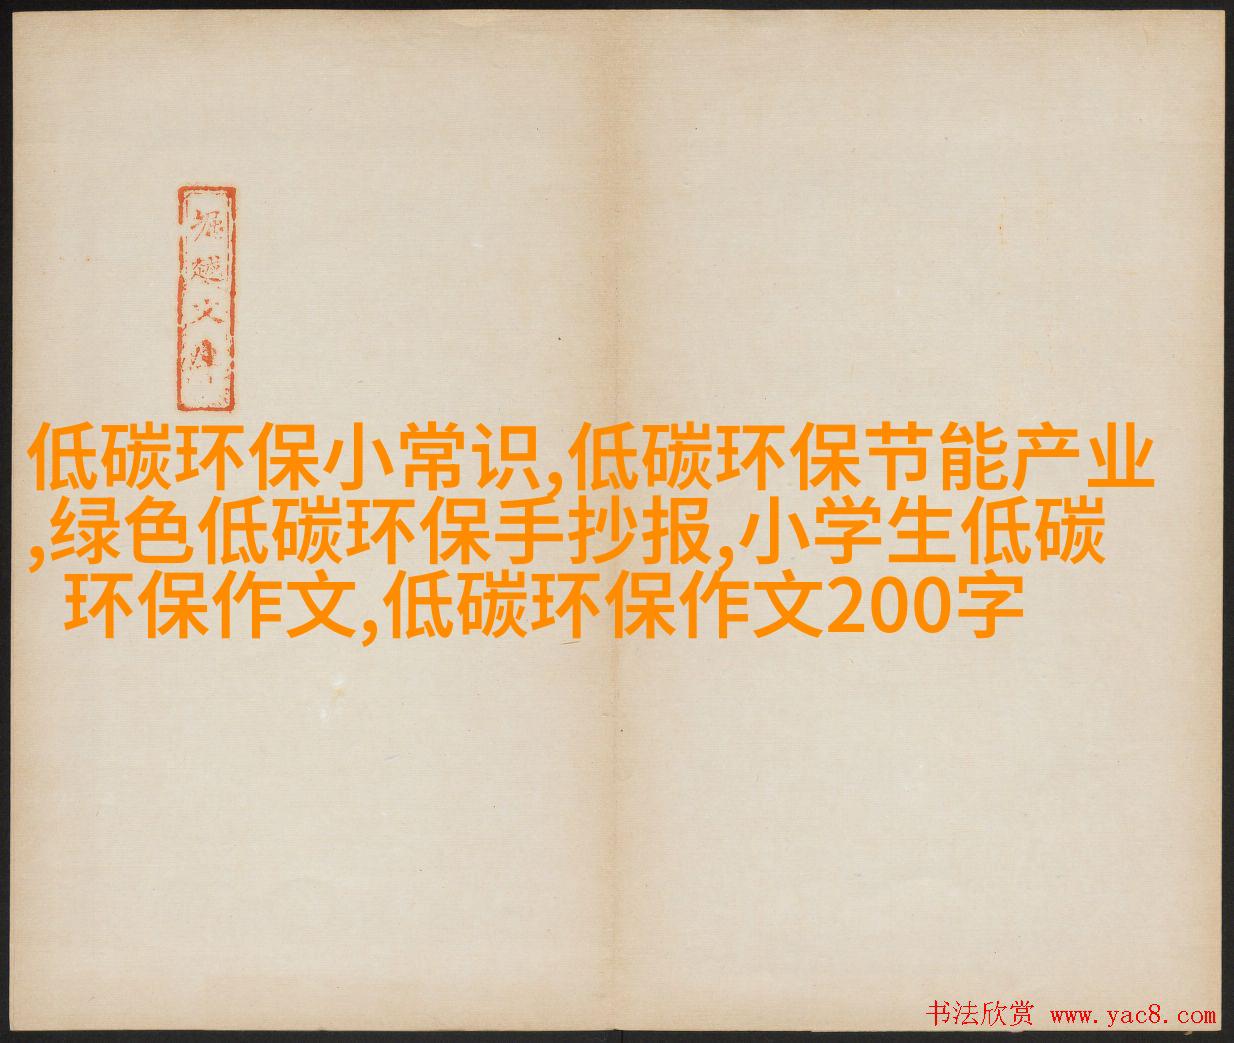 堀越文庫
低碳环保小常识,低碳环保节能产业
,绿色低碳环保手抄报,小学生低碳
环保作文,低碳环保作文200字
书法欣赏 www.yac8.com